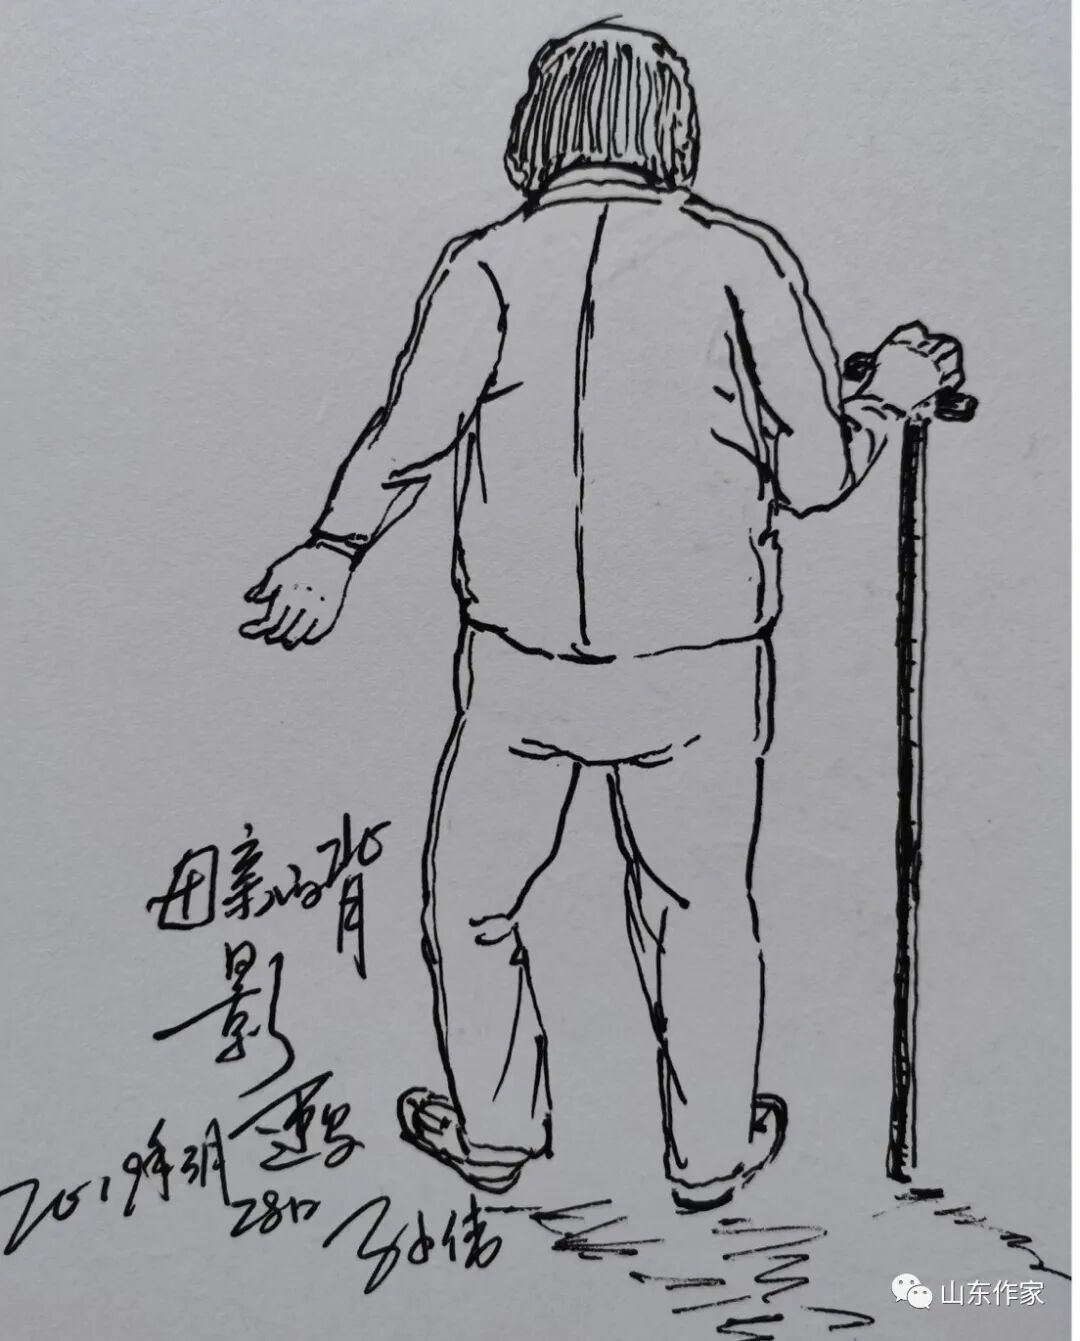 母亲的背
影
2019年3月
28日
孙伟
山东作家